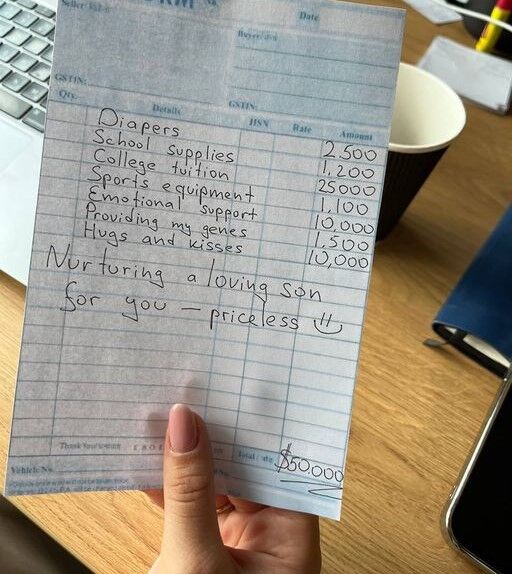 Date
GSTIN:
GSTIN:
Qty. Details HSN Rate Amount
Diapers 2.500
School supplies 1,200
College tuition 25000
Sports equipment 1,100
Emotional support 10,000
Providing my genes 1,500
Hugs and kisses 10,000
Nurturing a loving son
for you – priceless
$50.000
Vehicle No.